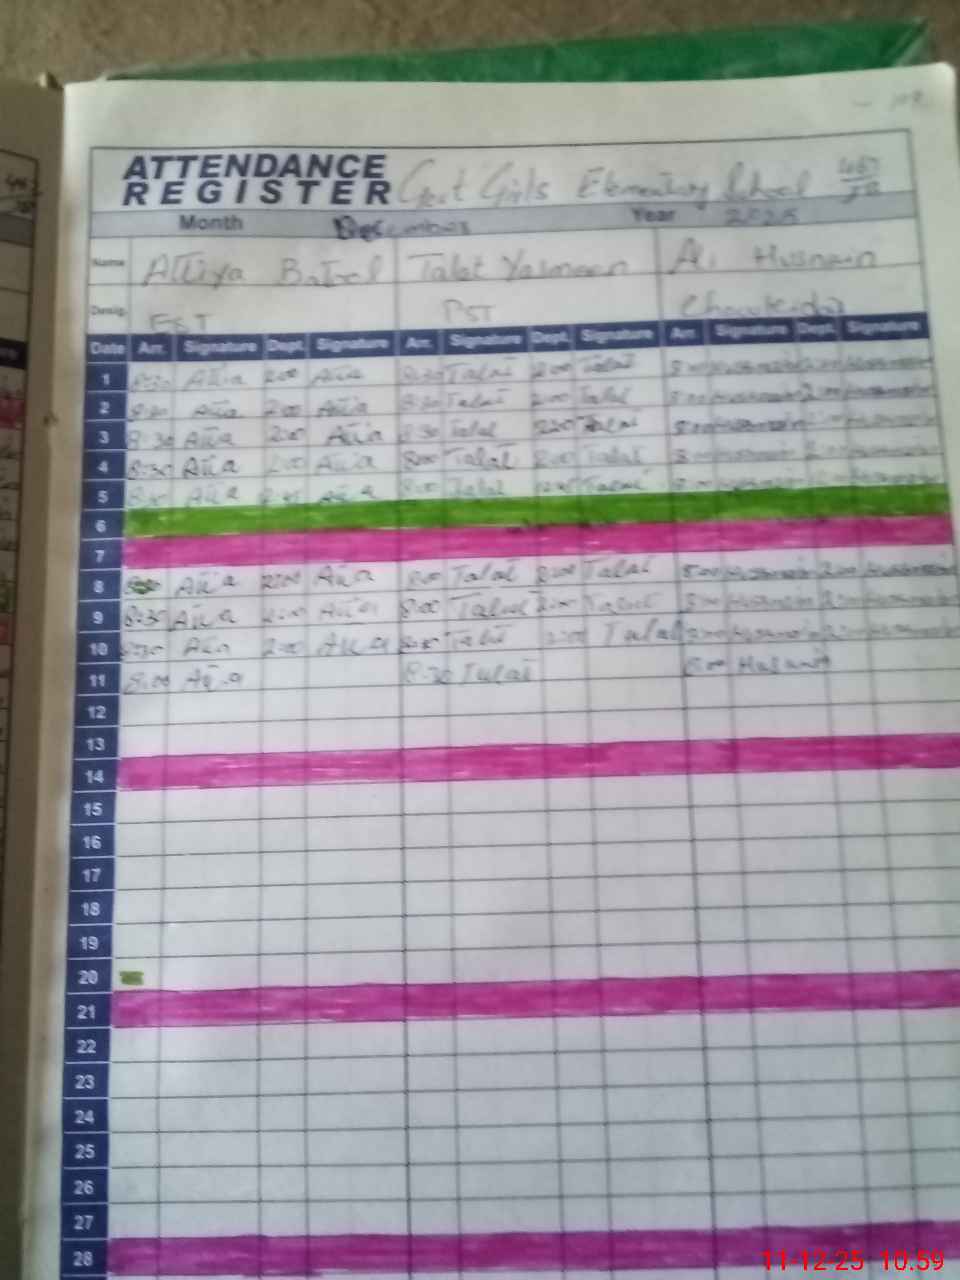 ATTENDANCE
REGISTER Govt Girls Elementary School
Month December Year 2025
Name Attiya Batool Talat Yasmeen Ali Husnain
Desig. EST PST Chowkidar
Date Arr. Signature Dept. Signature Arr. Signature Dept. Signature Arr. Signature Dept. Signature
1 8:30 Attia 2:00 Attia 8:30 Talat 2:00 Talat 8:00 Husnain
2 8:30 Attia 2:00 Attia 8:30 Talat 2:00 Talat 8:00 Husnain 2:00 Husnain
3 8:30 Attia 2:00 Attia 8:30 Talat Talat 8:00 Husnain Husnain
4 8:30 Attia 2:00 Attia 8:00 Talat 2:00 Talat 8:00 Husnain 2:00 Husnain
5 Attia Attia 8:00 Talat Talat 8:00 Husnain Husnain
6
7
8 Attia 2:00 Attia 8:00 Talat 2:00 Talat 8:00 Husnain 2:00 Husnain
9 8:30 Attia 2:00 Attia 8:00 Talat 2:00 Talat 8:00 Husnain 2:00 Husnain
10 8:30 Attia 2:00 Attia Talat 2:00 Talat 8:00 Husnain 2:00 Husnain
11 8:00 Attia 8:30 Talat 8:00 Husnain
12
13
14
15
16
17
18
19
20
21
22
23
24
25
26
27
28
11-12-25 10.59